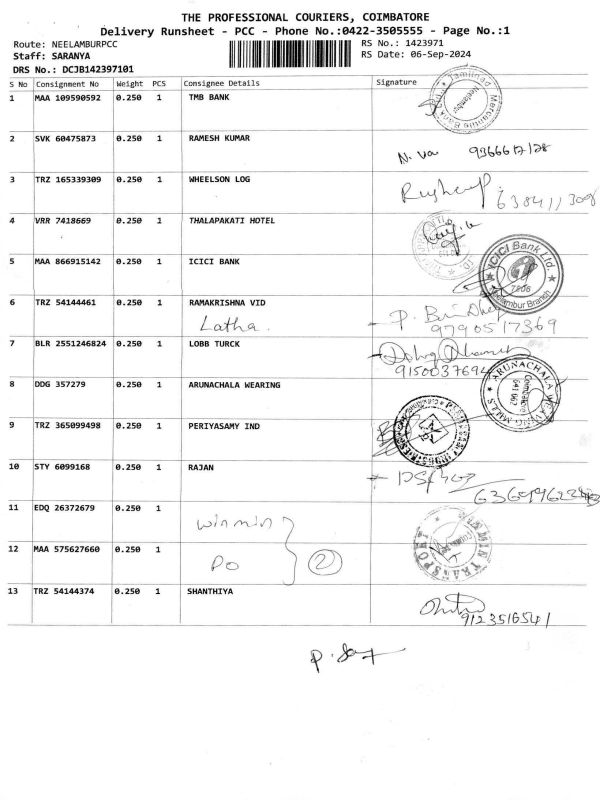 THE PROFESSIONAL COURIERS, COIMBATORE
Delivery Runsheet - PCC - Phone No.:0422-3505555 - Page No.:1
Route: NEELAMBURPCC RS No.: 1423971
Staff: SARANYA RS Date: 06-Sep-2024
DRS No.: DCJB142397101
S No Consignment No Weight PCS Consignee Details Signature
1 MAA 109590592 0.250 1 TMB BANK
Tamilnad Mercantile Bank Neelambur
2 SVK 60475873 0.250 1 RAMESH KUMAR
3 TRZ 165339309 0.250 1 WHEELSON LOG
4 VRR 7418669 0.250 1 THALAPAKATI HOTEL
5 MAA 866915142 0.250 1 ICICI BANK
ICICI Bank Ltd. Neelambur Branch
6 TRZ 54144461 0.250 1 RAMAKRISHNA VID
Latha.
9790517369
7 BLR 2551246824 0.250 1 LOBB TURCK
9150037694
8 DDG 357279 0.250 1 ARUNACHALA WEARING
ARUNACHALA WEAVING MILLS Coimbatore 641 062
9 TRZ 365099498 0.250 1 PERIYASAMY IND
10 STY 6099168 0.250 1 RAJAN
11 EDQ 26372679 0.250 1 winmin
12 MAA 575627660 0.250 1 PO 2
WINMIN TRANSPORT
13 TRZ 54144374 0.250 1 SHANTHIYA
9123516541